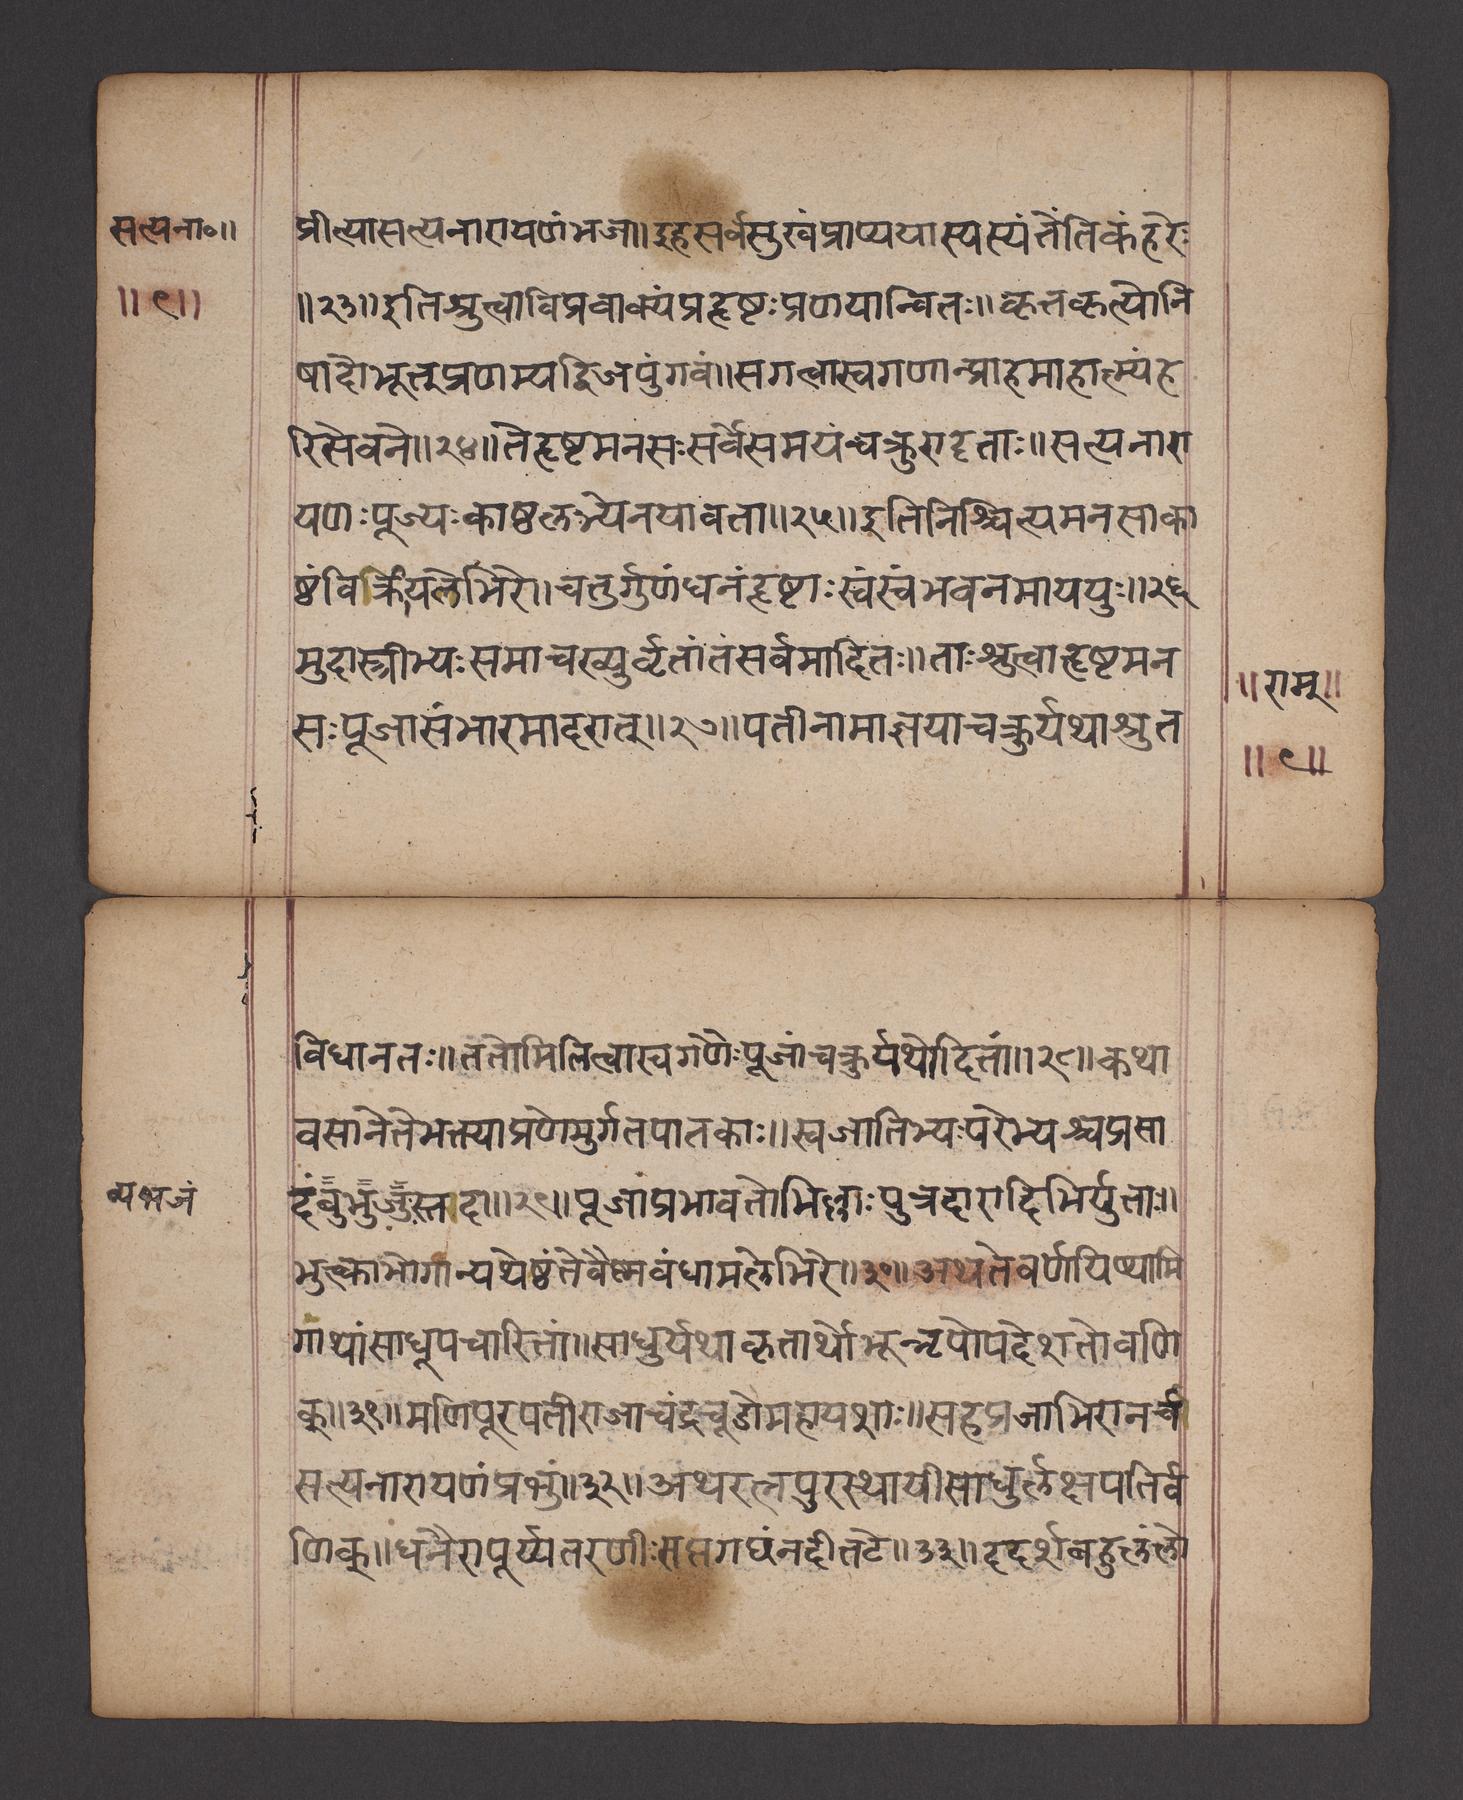 सत्यना०॥
॥९॥
प्रीत्यासत्यनारायणंभज॥इहसर्वसुखंप्राप्ययास्यस्यंतेंतिकंहरेः
॥२३॥इतिश्रुत्वाविप्रवाक्यंप्रहृष्टःप्रणयान्वितः॥कृतकृत्योनि
षादोभूत्तुप्रणम्यद्विजपुंगवं॥सगत्वास्वगणान्प्राहमाहात्म्यंह
रिसेवने॥२४॥तेहृष्टमनसःसर्वेसमयंचक्रुरादृताः॥सत्यनारा
यणःपूज्यःकाष्ठलभ्येनयावता॥२५॥इतिनिश्चित्यमनसाका
ष्ठंविक्रीयलेभिरे॥चतुर्गुणंधनंहृष्टाःस्वंस्वंभवनमाययुः॥२६
मुदास्त्रीभ्यःसमाचख्युर्वृतांतंसर्वमादितः॥ताःश्रुत्वाहृष्टमन
सःपूजासंभारमादरात्॥२७॥पतीनामाज्ञयाचक्रुर्यथाश्रुत
॥राम॥
॥९॥
विधानतः॥ततोमिलित्वास्वगणैःपूजांचक्रुर्यथोदितां॥२८॥कथा
वसानेतेभक्त्याप्रणेमुर्गतपातकाः॥स्वजातिभ्यःपरेभ्यश्चप्रसा
दंबुभुजुस्तदा॥२९॥पूजाप्रभावतोभिल्लाःपुत्रदारादिभिर्युताः॥
व्यभजं
भुक्त्काभोगान्यथेष्ठंतेवैष्णवंधामलेभिरे॥३०॥अथतेवर्णयिष्यामि
गाथांसाधूपचारितां॥साधुर्यथाकृतार्थोभून्नृपोपदेशतोवणि
क्॥३१॥मणिपूरपतीराजाचंद्रचूडोमहायशाः॥सहप्रजाभिरानर्च
सत्यनारायणंप्रभुं॥३२॥अथरत्नपुरस्थायीसाधुर्लक्षपतिर्व
णिक्॥धनैरापूर्य्यतरणीःसप्तगछंनदीतटे॥३३॥ददर्शबहुलंलो